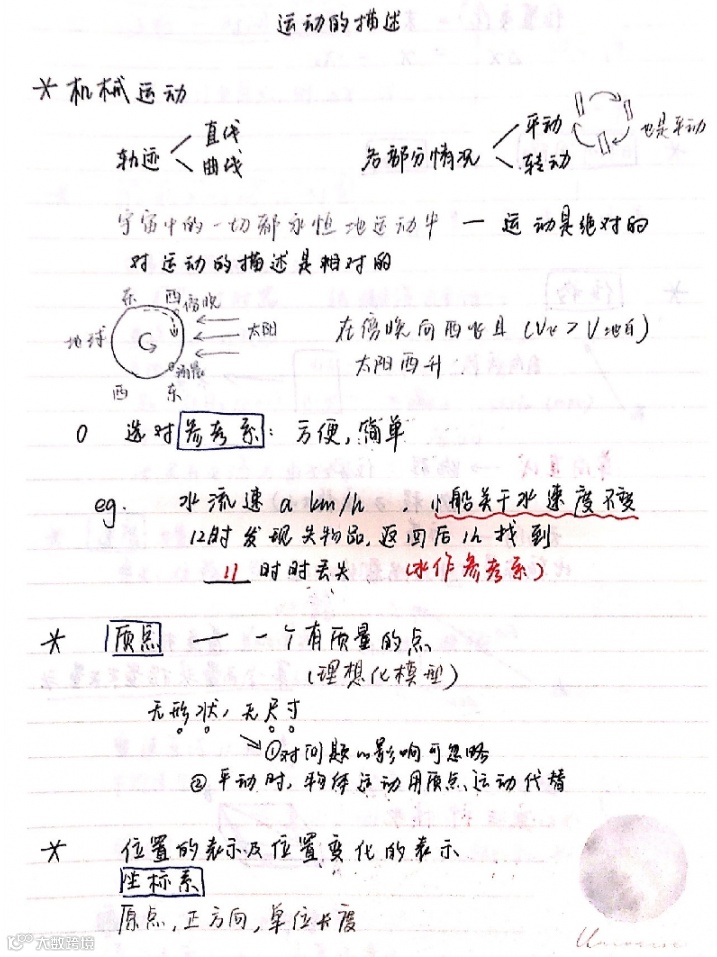 运动的描述
* 机械运动
轨迹 直线 曲线
各部分情况 平动 转动 也是平动
宇宙中的一切都永恒地运动中 — 运动是绝对的
对运动的描述是相对的
东 西 傍晚
地球 太阳
清晨
西 东
在傍晚向西飞且 (V飞 > V地自)
太阳西升
0 选对参考系: 方便, 简单
eg. 水流速 a km/h , 小船关于水速度不变
12时发现失物品, 返回后1h找到
11 时时丢失 (水作参考系)
* 质点 — 一个有质量的点
(理想化模型)
无形状, 无尺寸
①对问题的影响可忽略
② 平动时, 物体运动用质点运动代替
* 位置的表示及位置变化的表示
坐标系
原点, 正方向, 单位长度
Universe
大数跨境